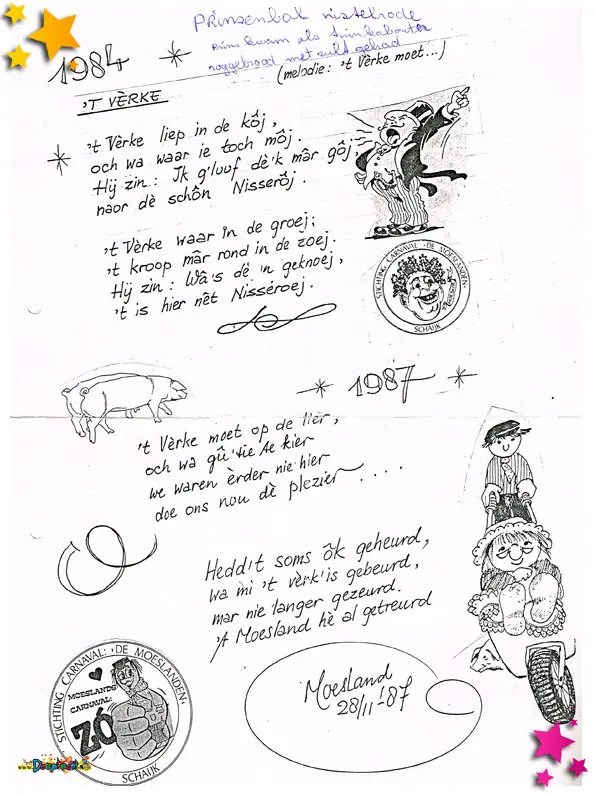 Prinsenbal nistelrode
1984
prins kwam als
roggebrood met zult gehad
(melodie: 't Vèrke moet...)
'T VÈRKE
't Vèrke liep in de kôj,
och wa waar ie toch môj.
Hij zin: Ik g'luuf dê'k mâr gôj
naor dè schôn Nisserôj.
't Vèrke waar in de groej;
't kroop mâr rond in de zoej.
Hij zin: Wâ's dê 'n geknoej,
't is hier nêt Nisseroej.
STICHTING CARNAVAL 'DE MOESLANDEN'
SCHAIJK
1987
't Vèrke moet op de lier,
och wa gû'tie te kier
we waren èrder nie hier
doe ons nou dè plezier....
Hedd't soms ôk geheurd,
wa mi 't vèrk is gebeurd,
mar nie langer gezeurd.
'A Moesland hè al getreurd
Moesland
28/11-'87
STICHTING CARNAVAL: 'DE MOESLANDEN'
MOESLANDS
CARNAVAL:
ZÓ
SCHAIJK